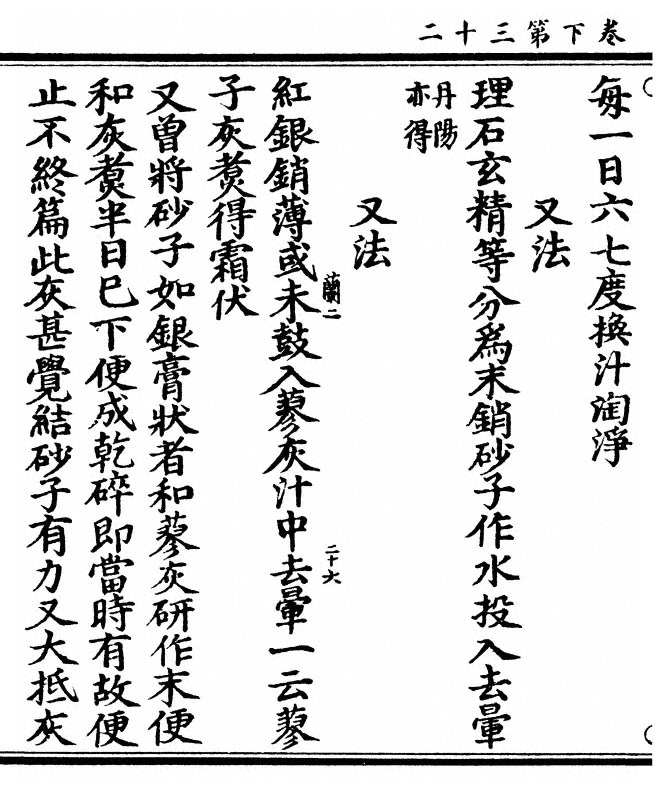 卷下第三十二
每一日六七度換汁淘淨
又法
理石玄精等分為末銷砂子作水投入去暈
丹陽
亦得
又法
紅銀銷薄或未鼓入蔘灰汁中去暈一云蔘
蘭二
二十六
子灰煑得霜伏
又曾將砂子如銀膏狀者和蔘灰研作末便
和灰煑半日已下便成乾碎即當時有故便
止不終篇此灰甚覺結砂子有力又大抵灰